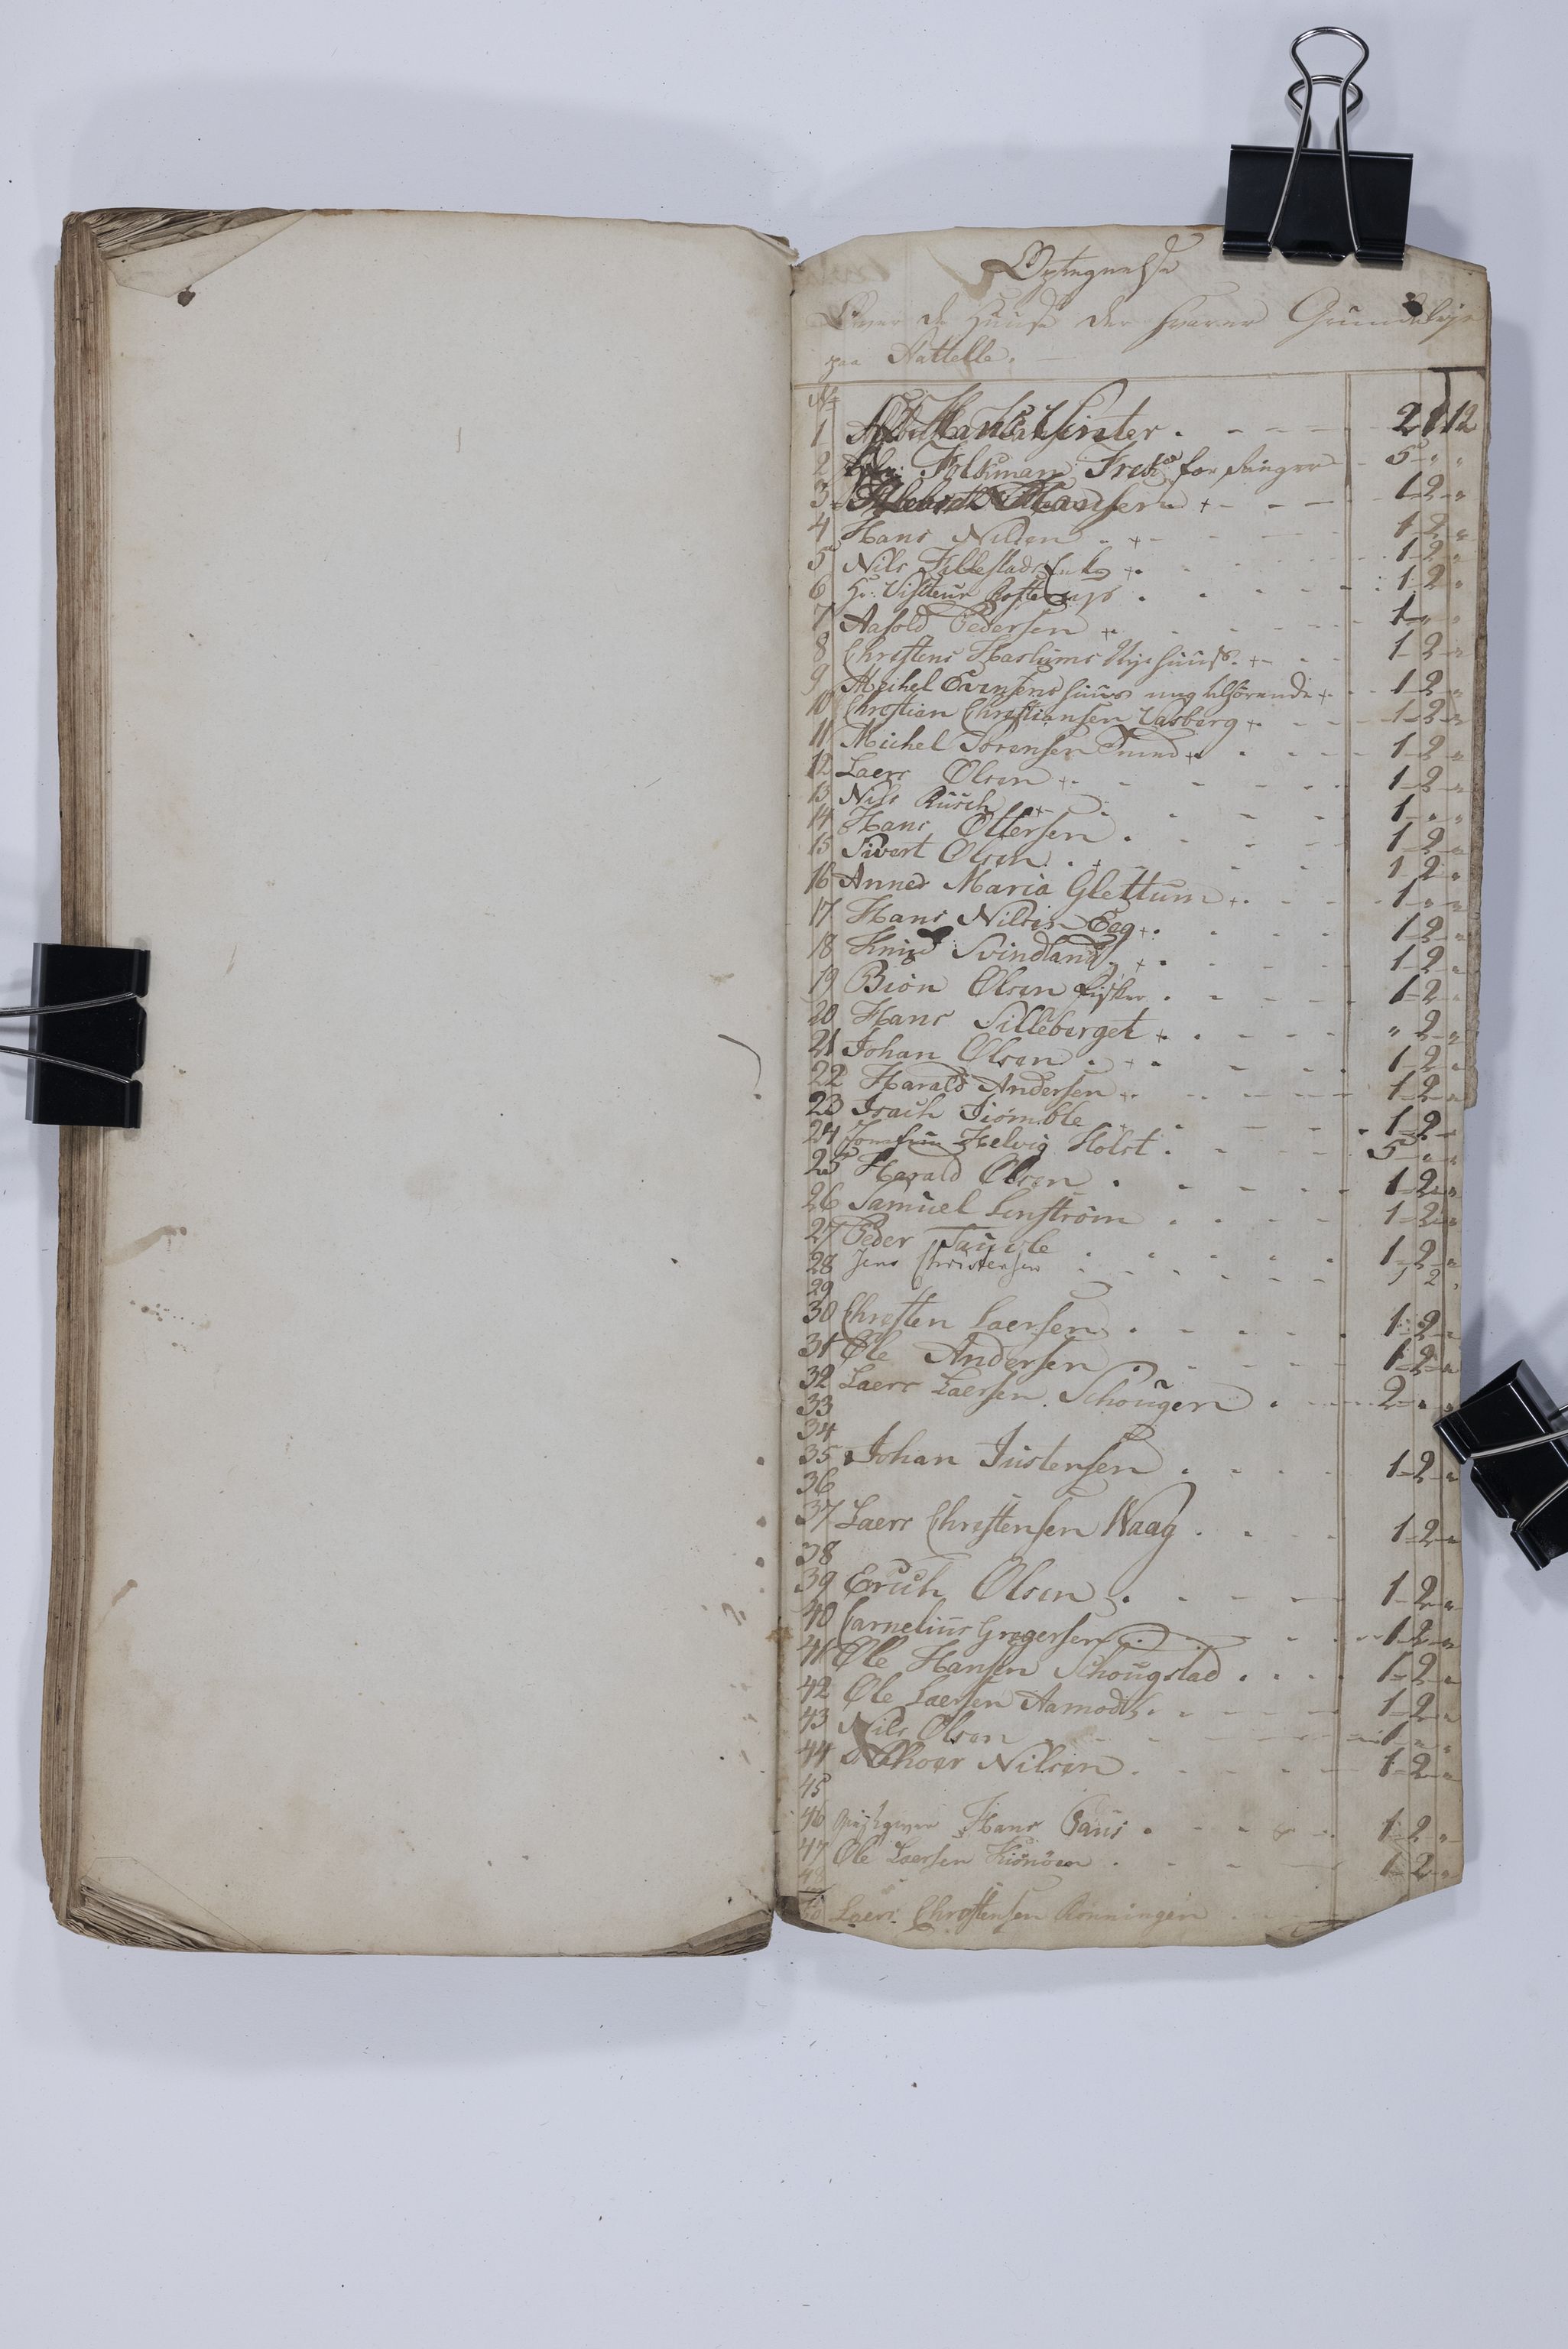 Optegnelse
Over de Huuse der svarer Grundeleje
paa Hattelle.
No
1 Hans Winter 2 1 12
2 Folkman Fred for 5 " "
3 Hansen + 1 2 "
4 Hans Nilsen + 1 2 "
5 Nils Fillestads Enke + 1 2 "
6 Hr: Visteur 1 2 "
7 Aasold Pedersen + 1 " "
8 Christens Haslums Nye Huus + 1 2 "
9 Michel Evensens huus + 1 2 "
10 Christian Christiansen Varberg + 1 2 "
11 Michel Sørensen + 1 2 "
12 Laers Olsen + 1 2 "
13 Nils Rusch + 1 " "
14 Hans Ottersen 1 2 "
15 Sivert Olsen + 1 2 "
16 Anne Maria Glettum + 1 " "
17 Hans Nilsen Eeg + 1 2 "
18 Knud Svindland + 1 2 "
19 Biøn Olsen fisker 1 2 "
20 Hans Silleberget + " 2 "
21 Johan Olsen + 1 2 "
22 Harald Andersen + 1 2 "
23 Isach Tiømble 1 2 "
24 Jomfrue Helvig Holst 5 " "
25 Harald Olsen 1 2 "
26 Samuel Lenstrøm 1 2 "
27 Peder 1 2 "
28 Jens Christensen 1 2 "
29
30 Christen Laersen 1 2 "
31 Ole Andersen 1 2 "
32 Laers Laersen Schougen 2 " "
33
34
35 Johan Justensen 1 2 "
36
37 Laers Christensen Waag 1 2 "
38
39 Erich Olsen 1 2 "
40 Carnelius Gregersen 1 2 "
41 Ole Hansen Schougstad 1 2 "
42 Ole Laersen Aamodt 1 2 "
43 Nils Olsen 1 " "
44 Nilsen 1 2 "
45
46 Hans Paus 1 2 "
47 Ole Laersen 1 2 "
Laers Christensen Rønningen